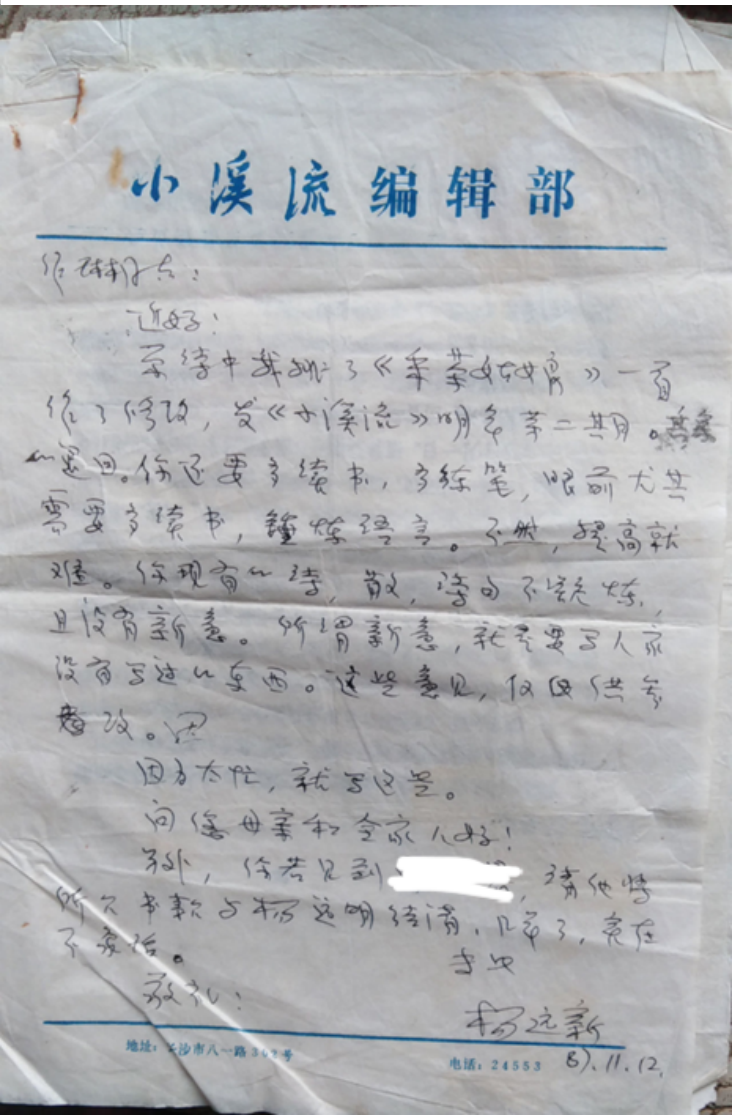 小溪流编辑部
作林同志：
近好！
来稿中我挑了《采茶姑娘》一首
作了修改，发《小溪流》明年第二期。
退回。你还要多读书，多练笔，眼前尤其
需要多读书，锤炼语言。不然，提高就
难。你现有的诗，散，诗句不凝炼，
且没有新意。所谓新意，就是要写人家
没有写过的东西。这些意见，仅仅供参
改。
因为太忙，就写这些。
问你母亲和全家人好！
另外，你若见到，请他将
所欠书款与杨远明结清，几年了，实在
不象话。
敬礼！
杨远新
87.11.12.
地址：长沙市八一路302号
电话：24553